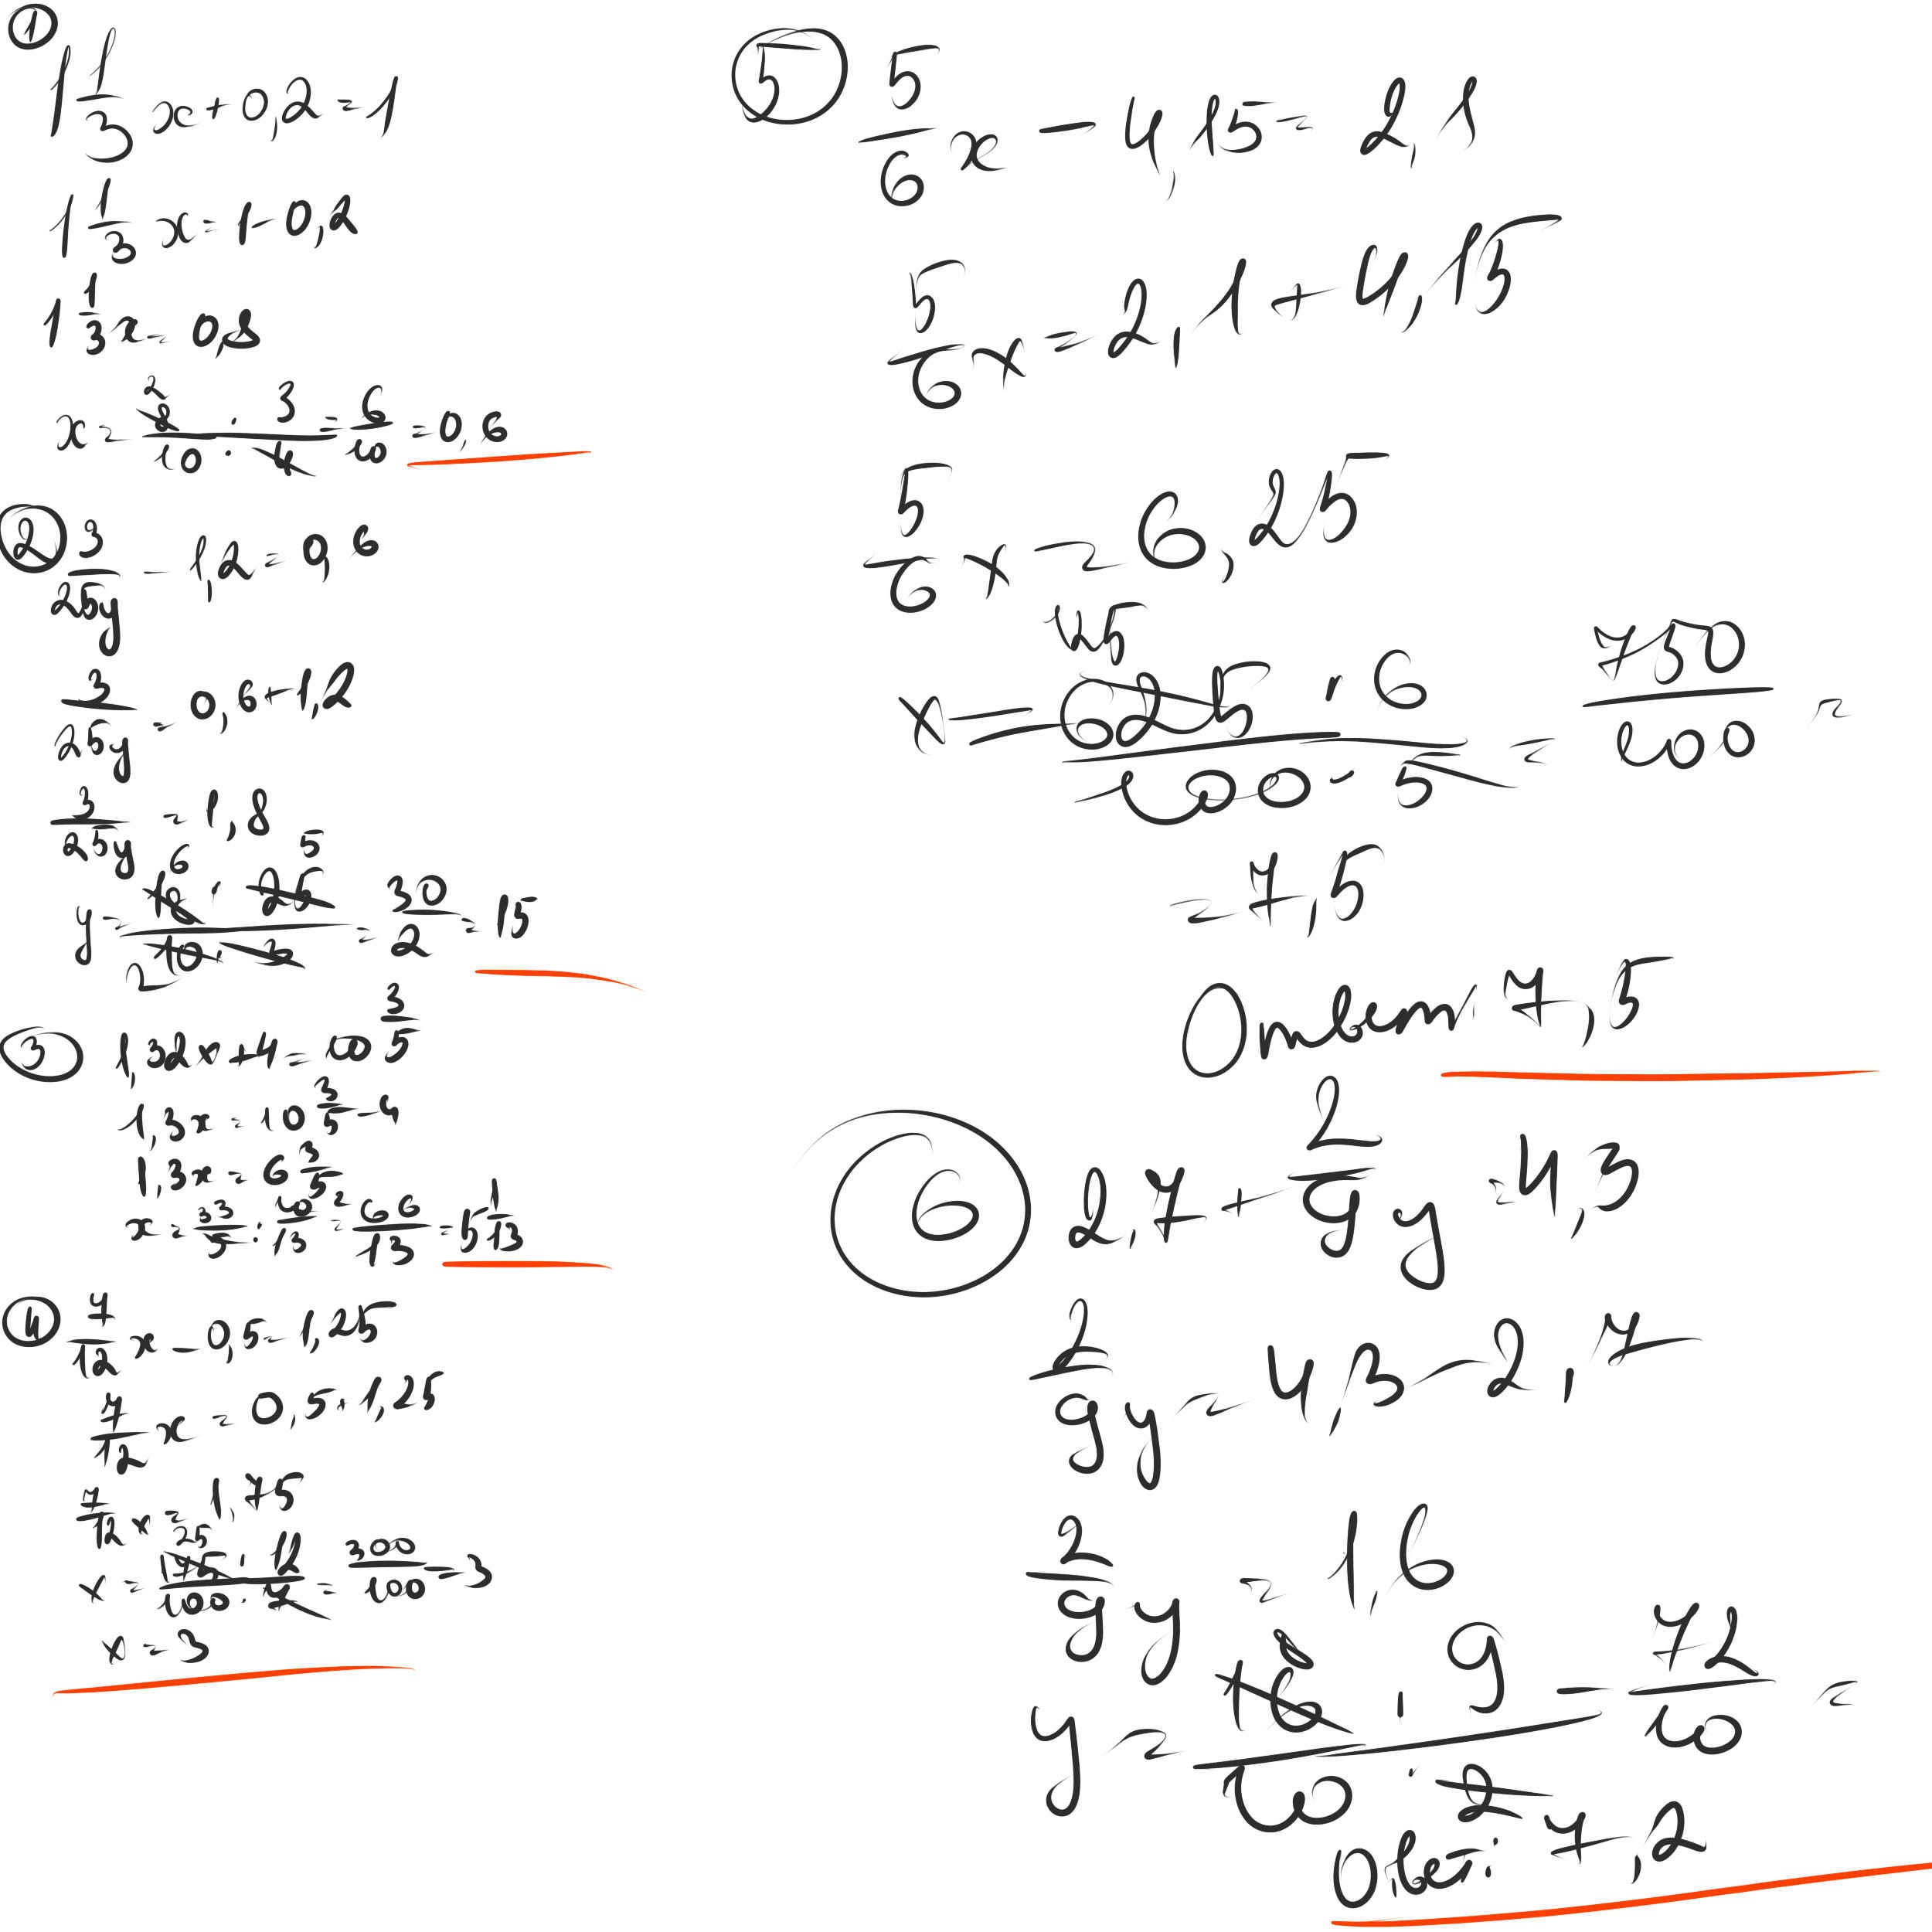 ① 1 1/3 x + 0,2 = 1
1 1/3 x = 1 - 0,2
1 1/3 x = 0,8
x = 8 · 3 / 10 · 4 = 6/10 = 0,6
2
② 3/25 y - 1,2 = 0,6
3/25 y = 0,6 + 1,2
3/25 y = 1,8
6 5
y = 18 · 25 / 10 · 3 = 30/2 = 15
2
③ 1,32x + 4 = 10 3/5
1,3x = 10 3/5 - 4
1,3x = 6 3/5
x = 33/5 · 10/13 2 = 66/13 = 5 1/13
④ 7/12 x - 0,5 = 1,25
7/12 x = 0,5 + 1,25
7/12 x = 1,75
25
x = 175 · 12 / 100 · 7 = 300/100 = 3
x = 3
⑤ 5/6 x - 4,15 = 2,1
5/6 x = 2,1 + 4,15
5/6 x = 6,25
125
x = 625 · 6 / 100 · 5 = 750/100 =
= 7,5
Ответ: 7,5
⑥ 2,7 + 2/9 y = 4,3
2/9 y = 4,3 - 2,7
2/9 y = 1,6
8
y = 16 · 9 / 10 · 2 = 72/10 =
Ответ: 7,2